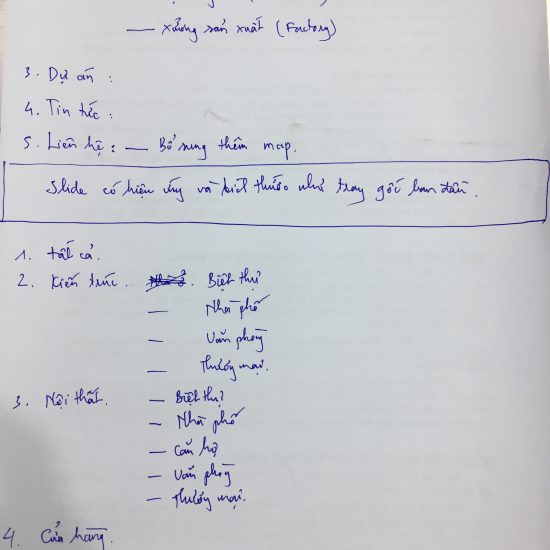 — Xưởng sản xuất (Factory)
3. Dự án :
4. Tin tức :
5. Liên hệ : — Bổ sung thêm map.
Slide có hiệu ứng và kích thước như trang gốc ban đầu.
1. tất cả.
2. Kiến trúc. Biệt thự
— Nhà phố
— Văn phòng
— Thương mại.
3. Nội thất. — Biệt thự
— Nhà phố
— Căn hộ
— Văn phòng
— Thương mại.
4. Cửa hàng.